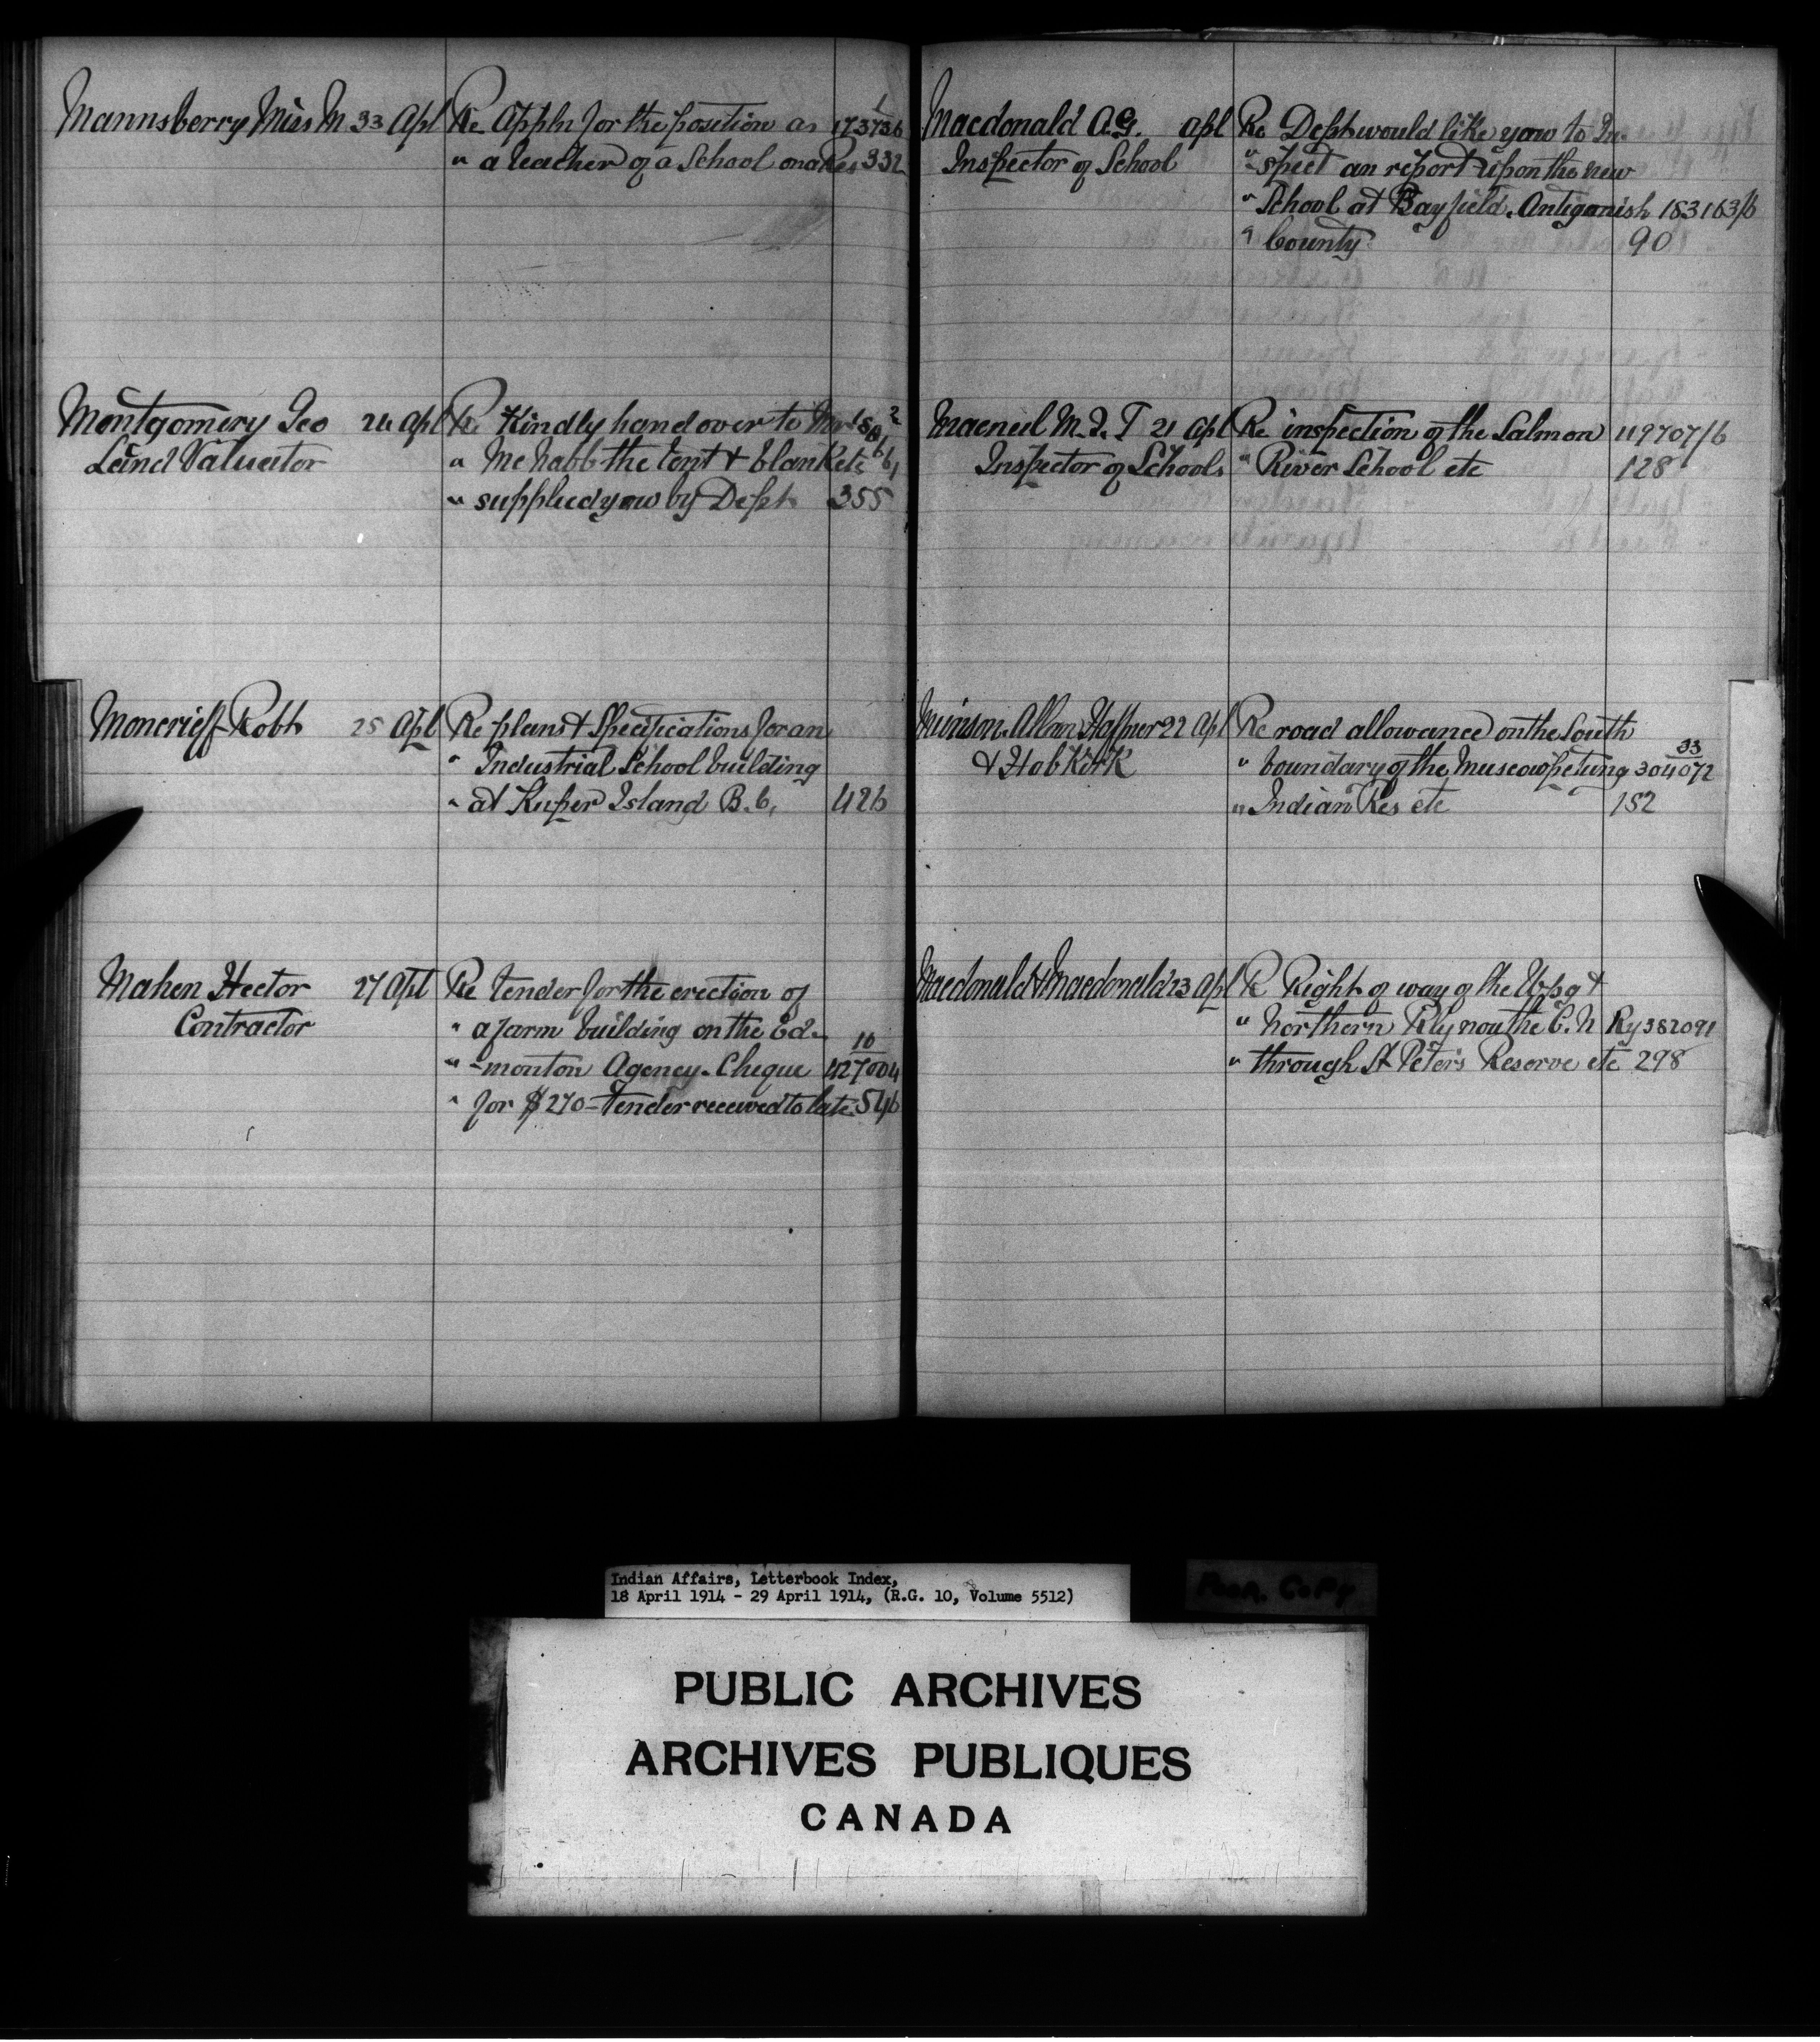 Mannsberry Miss M 33 Apl Re Appln for the position as 1 173736
" a teacher of a School on a Res 332
Montgomery Geo 24 Apl Re Kindly hand over to
Land Valuator " McNabb the tent & blankets
" supplied yow by Dept 355
Moncrieff Robt 25 Apl Re plans & Specifications for an
" Industrial School building
" at Kuper Island B.C. 426
Mahen Hector 27 Apl Re tender for the erection of
Contractor " a farm building on the Ed-
" -monton Agency. Cheque 10 427004
" for $270 - Tender received to late 546
Macdonald A.G. apl Re Dept would like yow to In-
Inspector of School " -spect an report upon the new
" School at Bayfield. Antiganish 183163/6
" County 90
Macneil M.J.T 21 Apl Re inspection of the Salmon 119707/6
Inspector of Schools " River School etc 128
Munson Allan Haffner 22 Apl Re road allowance on the South
& Hobkirk " boundary of the Muscowpetung 33 304072
" Indian Res etc 152
Macdonald & Macdonald 23 Apl Re Right of way of the Wpg &
" Northern Rly now the C.N Ry 382091
" through St Peter's Reserve etc 298
Indian Affairs, Letterbook Index,
18 April 1914 - 29 April 1914, (R.G. 10, Volume 5512)
PUBLIC ARCHIVES
ARCHIVES PUBLIQUES
CANADA